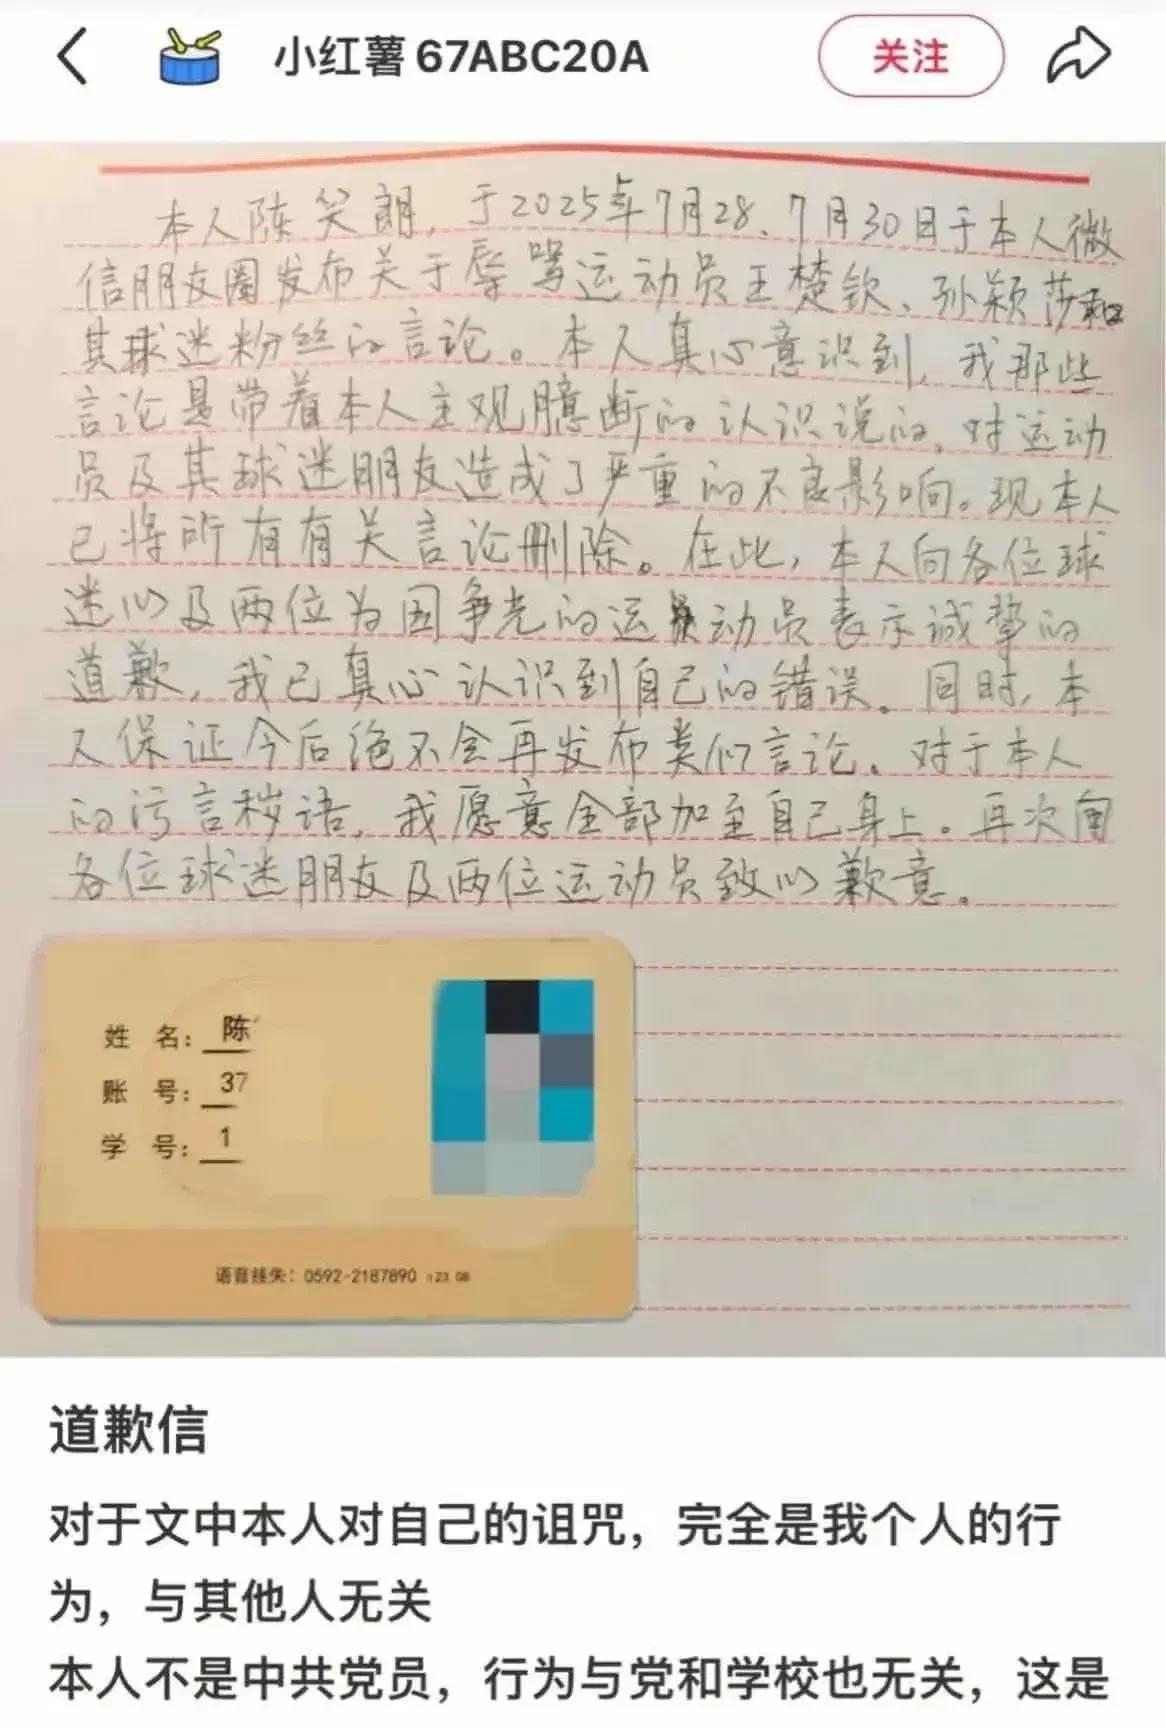 小红薯 67ABC20A
关注
本人陈笑朗，于2025年7月28、7月30日于本人微
信朋友圈发布关于辱骂运动员王楚钦、孙颖莎和
其球迷粉丝的言论。本人真心意识到，我那些
言论是带着本人主观臆断的认识说的，对运动
员及其球迷朋友造成了严重的不良影响。现本人
已将所有有关言论删除。在此，本人向各位球
迷以及两位为国争光的运动员表示诚挚的
道歉，我已真心认识到自己的错误。同时，本
人保证今后绝不会再发布类似言论。对于本人
的污言秽语，我愿意全部加至自己身上。再次向
各位球迷朋友及两位运动员致以歉意。
姓 名：陈
账 号：37
学 号：1
语音挂失：0592-2187890
道歉信
对于文中本人对自己的诅咒，完全是我个人的行
为，与其他人无关
本人不是中共党员，行为与党和学校也无关，这是